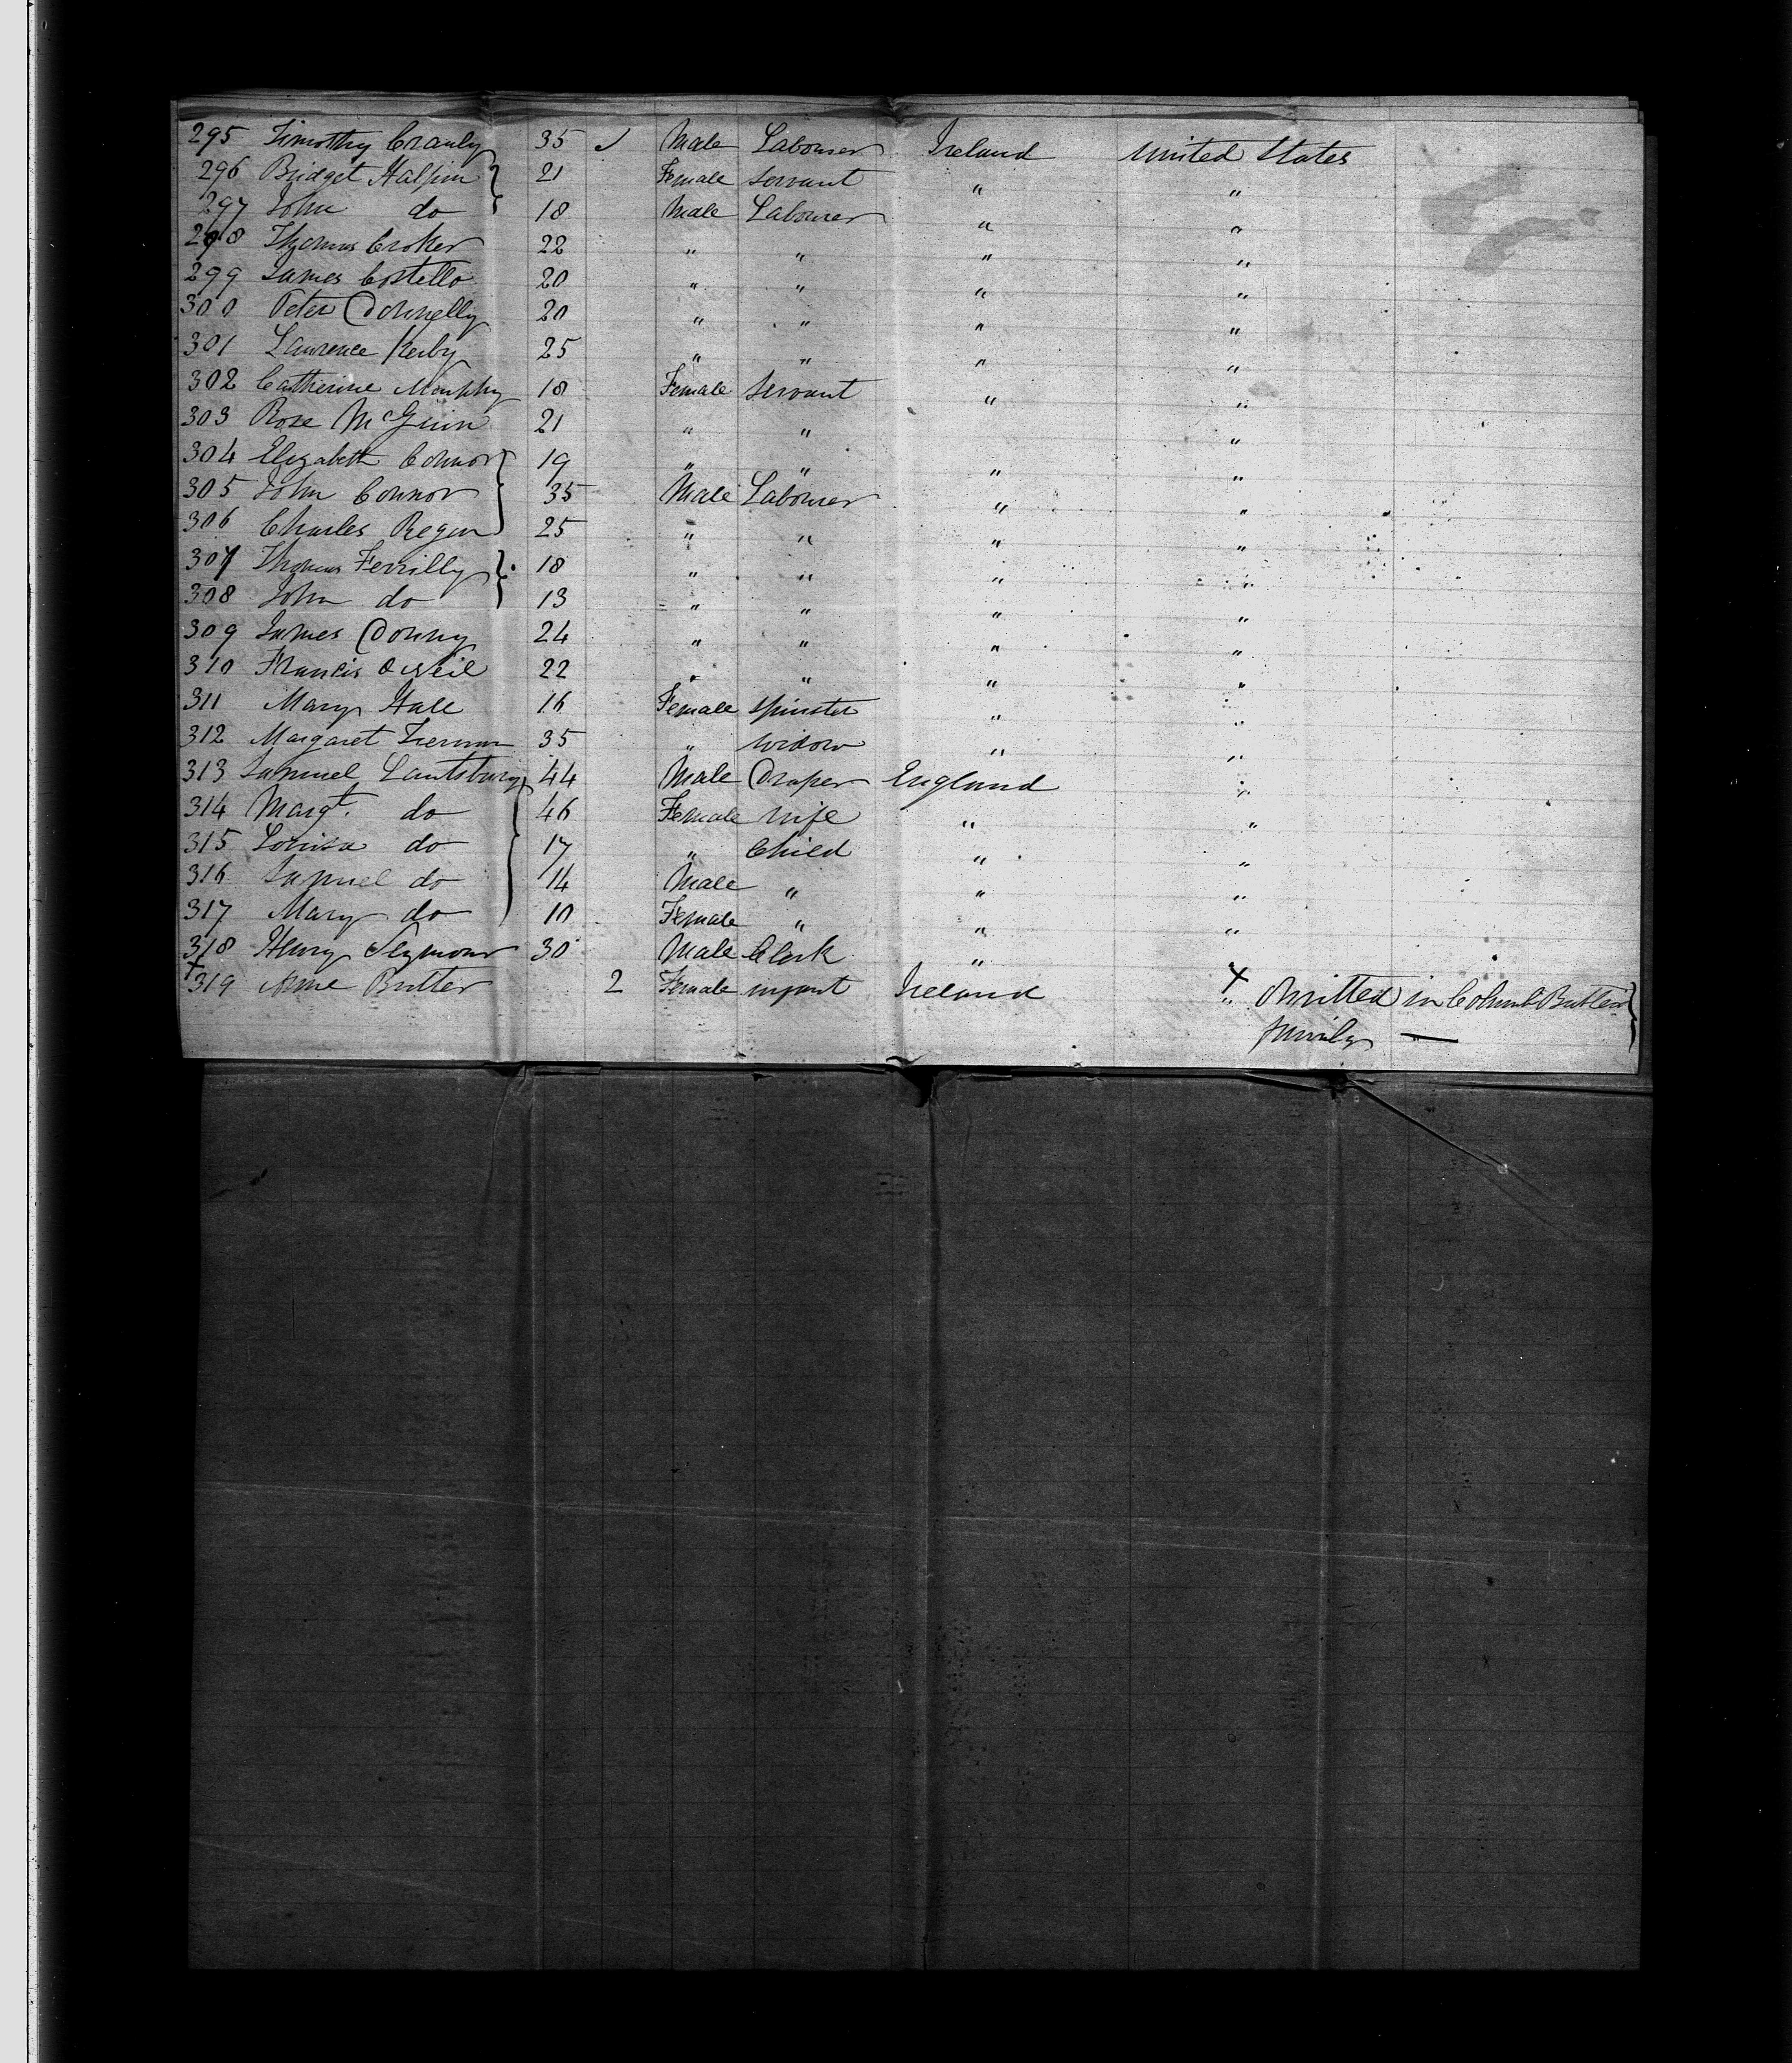 295 Timothy Cranly 35 ✓ Male Labourer Ireland United States
296 Bridget Halpin 21 Female Servant " "
297 John do 18 Male Labourer " "
298 Thomas Croker 22 " " " "
299 James Costello 20 " " " "
300 Peter Donnelly 20 " " " "
301 Laurence Kerby 25 " " " "
302 Catherine Murphy 18 Female Servant " "
303 Rose McGuin 21 " " "
304 Elizabeth Connor 19 " " " "
305 John Connor 35 Male Labourer " "
306 Charles Regan 25 " " " "
307 Thomas Ferrilly 18 " " " "
308 John do 13 " " " "
309 James Donny 24 " " " "
310 Francis O Neil 22 " " " "
311 Mary Hall 16 Female Spinster " "
312 Margaret Tiernan 35 " Widow " "
313 Samuel 44 Male Draper England "
314 Margt. do 46 Female Wife " "
315 Louisa do 17 " Child " "
316 Samuel do 14 Male " " "
317 Mary do 10 Female " " "
318 Henry Seymour 30 Male Clerk "
+319 Anne Butler 2 Female infant Ireland + " Omitted in Butler
family —